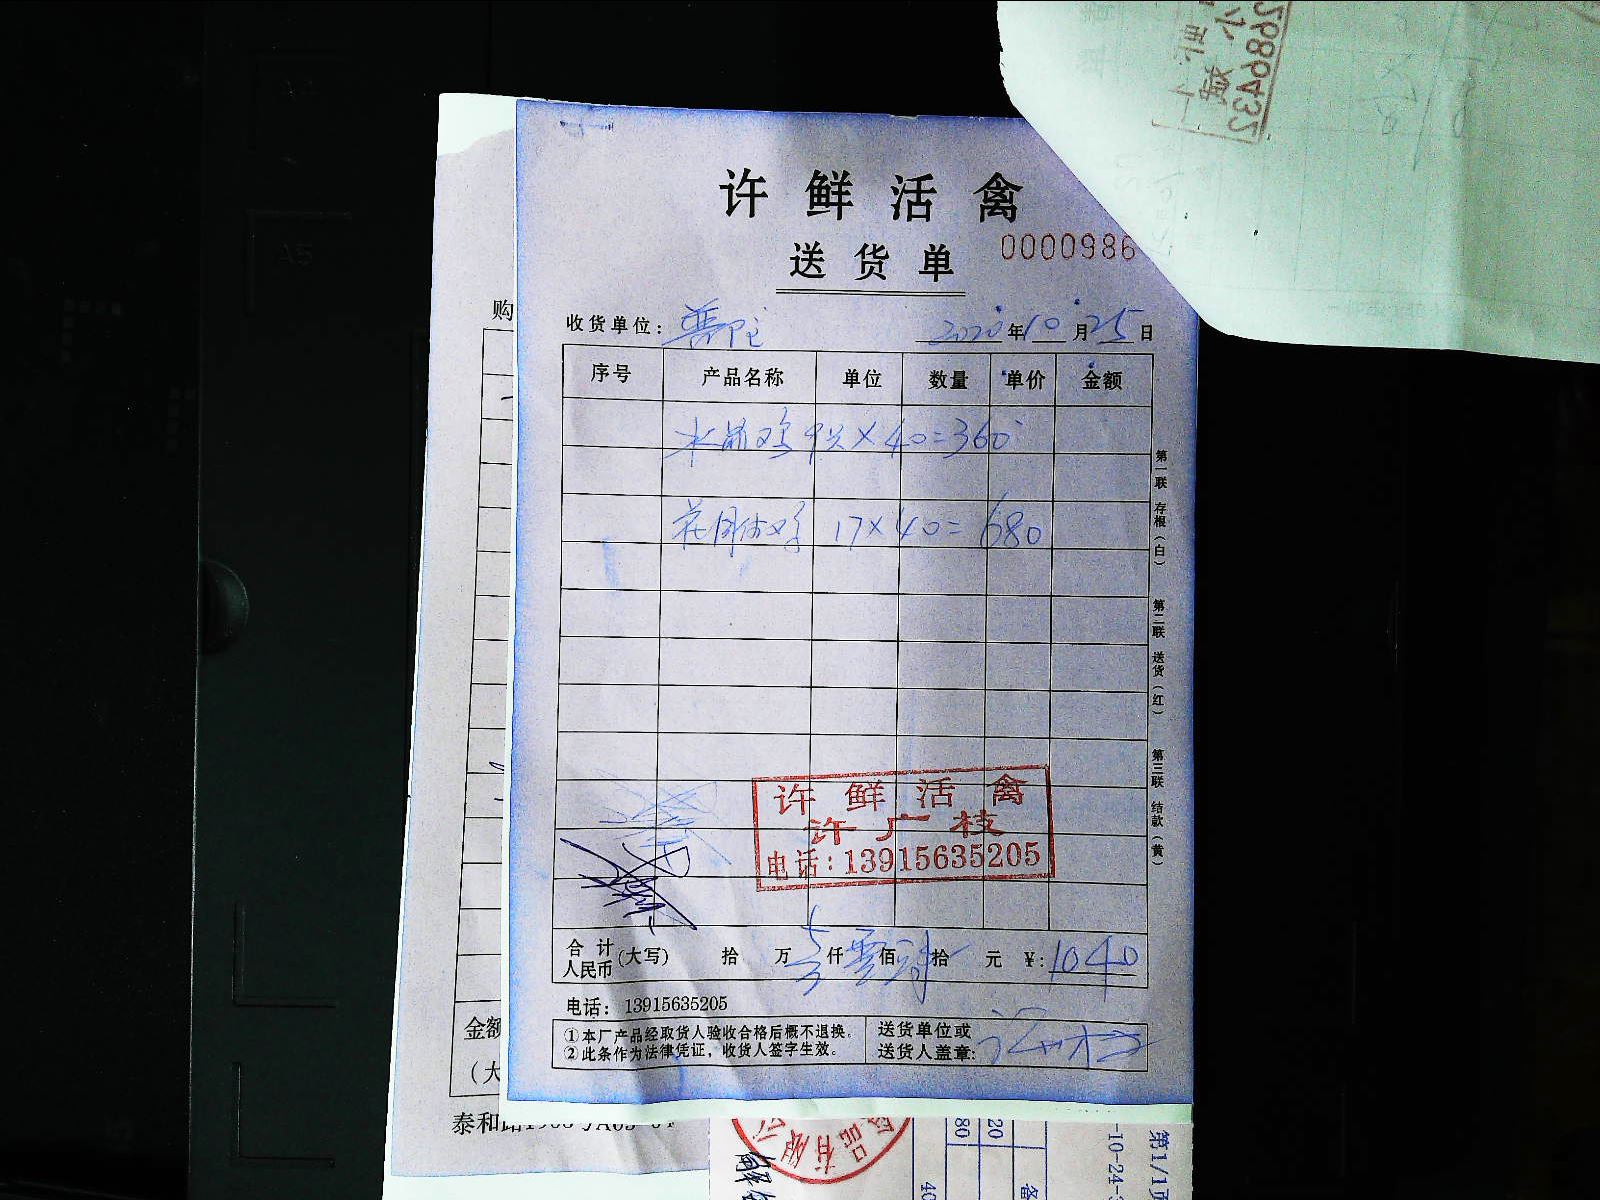 许鲜活禽
送货单
0000986
收货单位：普陀 2020年10月25日
序号 产品名称 单位 数量 单价 金额
水晶鸡 9只×40=360
花 鸡 17×40=680
第一联 存根（白） 第二联 送货（红） 第三联 结款（黄）
许鲜活禽
许广枝
电话：13915635205
合计人民币（大写） 拾 万 仟 零 佰 肆 拾 元 ￥：1040
电话： 13915635205
①本厂产品经取货人验收合格后概不退换。
②此条作为法律凭证，收货人签字生效。
送货单位或
送货人盖章：
购
金额
（大
泰和路
品有限公
20
80
-10-24-
第1/1页
2686432